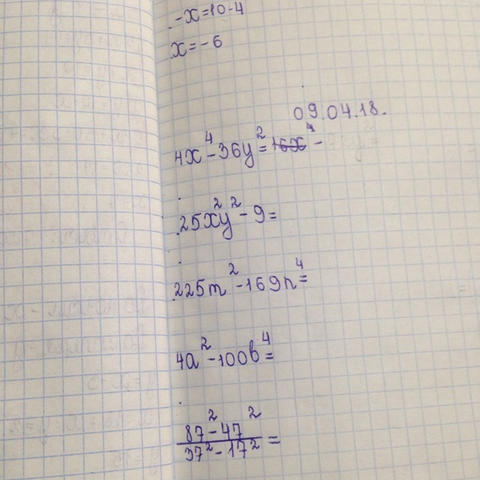 -x=10-4
x=-6
09.04.18.
4x⁴-36y²=16x⁴-
25x²y²-9=
225m²-169n⁴=
4a²-100b⁴=
87²-47²
37²-17²=